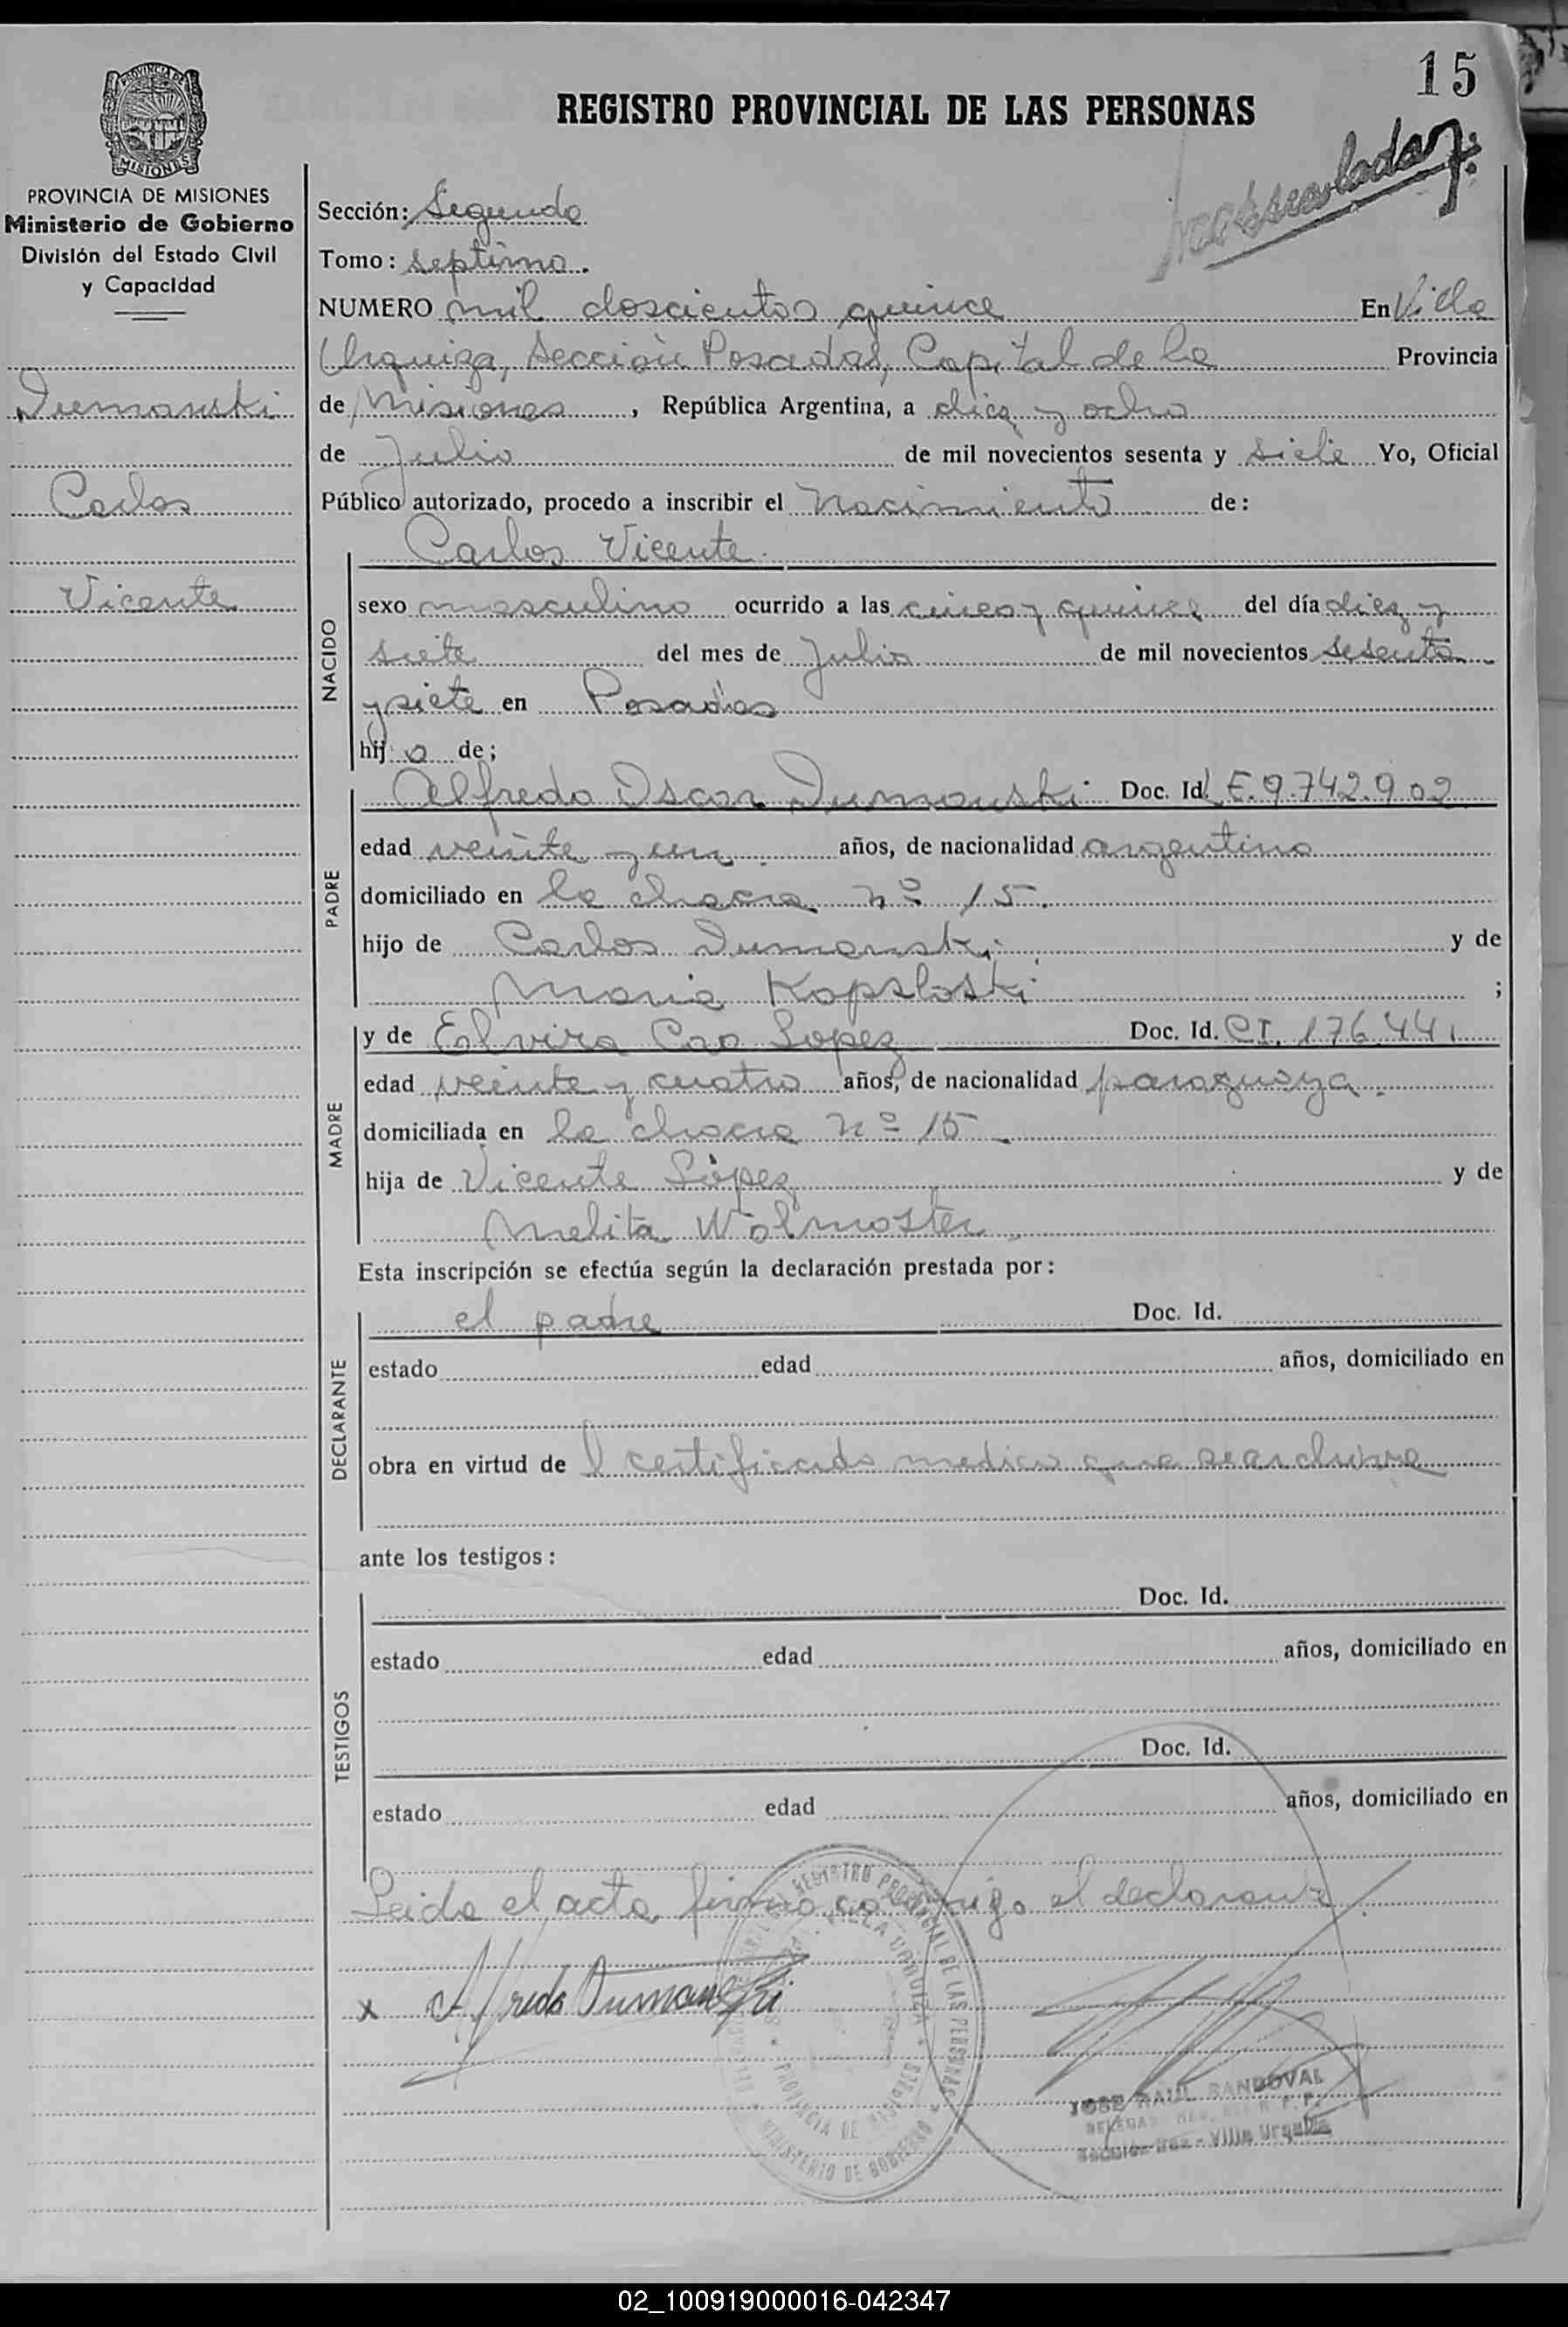 15
REGISTRO PROVINCIAL DE LAS PERSONAS
PROVINCIA DE MISIONES
PROVINCIA DE MISIONES
Ministerio de Gobierno
División del Estado Civil
y Capacidad
Dumanski
Carlos
Vicente
Sección: Segunda
Tomo: septimo.
NUMERO mil doscientos quince En Villa
Urquiza, Sección Posadas, Capital de la Provincia
de Misiones, República Argentina, a diez y ocho
de Julio de mil novecientos sesenta y siete Yo, Oficial
Público autorizado, procedo a inscribir el Nacimiento de:
NACIDO
Carlos Vicente
sexo masculino ocurrido a las cinco y quince del día diez y
siete del mes de Julio de mil novecientos sesenta
y siete en Posadas
hijo de;
PADRE
Alfredo Oscar Dumanski Doc. Id. L.E. 9.742.902
edad veinte y un años, de nacionalidad argentina
domiciliado en la chacra nº 15.
hijo de Carlos Dumanski y de
Maria Kopsloski ;
MADRE
y de Elvira Cao Lopez Doc. Id. CI. 176.441
edad veinte y cuatro años, de nacionalidad paraguaya.
domiciliada en la chacra nº 15
hija de Vicente López y de
Melita Wolmoster
Esta inscripción se efectúa según la declaración prestada por:
DECLARANTE
el padre Doc. Id.
estado edad años, domiciliado en
obra en virtud del certificado medico que se archiva
ante los testigos:
TESTIGOS
Doc. Id.
estado edad años, domiciliado en
Doc. Id.
estado edad años, domiciliado en
Leida el acta, firma conmigo el declarante
x Alfredo Dumanski
REGISTRO PROVINCIAL DE LAS PERSONAS
VILLA URQUIZA
PROVINCIA DE MISIONES
MINISTERIO DE GOBIERNO
JOSE RAUL SANDOVAL
Sección 2da - Villa Urquiza
02_100919000016-042347